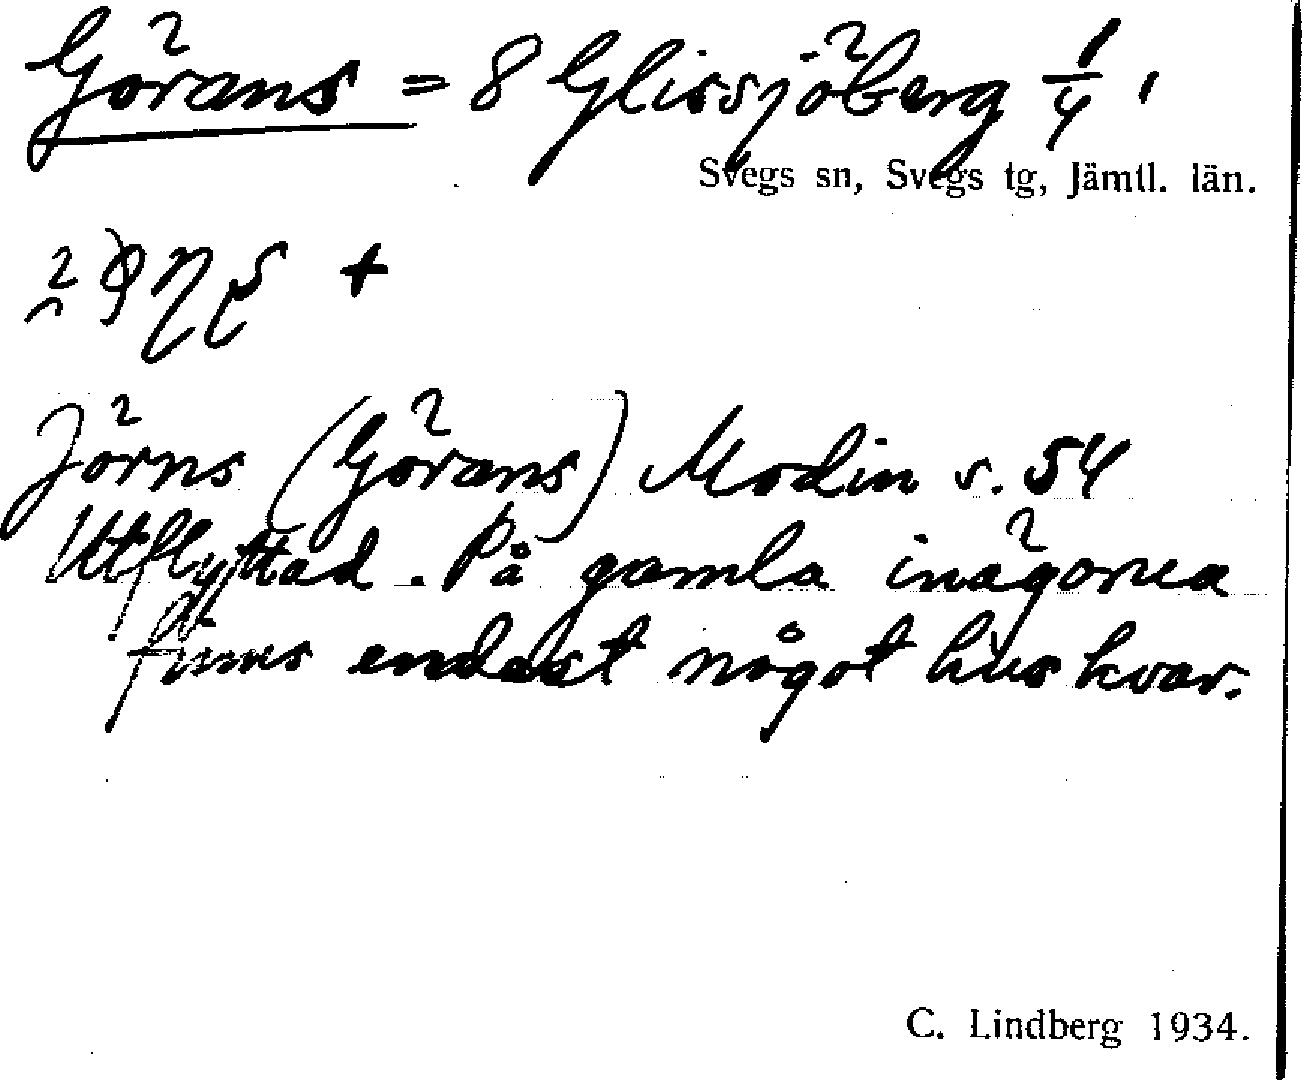 Görans = 8 Glissjöberg 1/4,
Svegs sn, Svegs tg, Jämtl. län.
+
Jörns (Görans) Modin s. 54
Utflyttad. På gamla inägorna
finns endast något hus kvar.
C. Lindberg 1934.